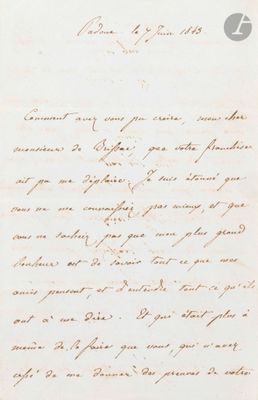 Padoue le 7 Juin 1813
Comment avez vous pu croire, mon cher
monsieur de que votre franchise
ait pu me déplaire. Je suis étonné que
vous ne me connaissiez pas mieux, et que
vous ne sachiez pas que mon plus grand
bonheur est de savoir tout ce que mes
amis pensent, et d'entendre tout ce qu'ils
ont à me dire. Et qui était plus à
même de le faire que vous, qui n'avez
cessé de me donner des preuves de votre